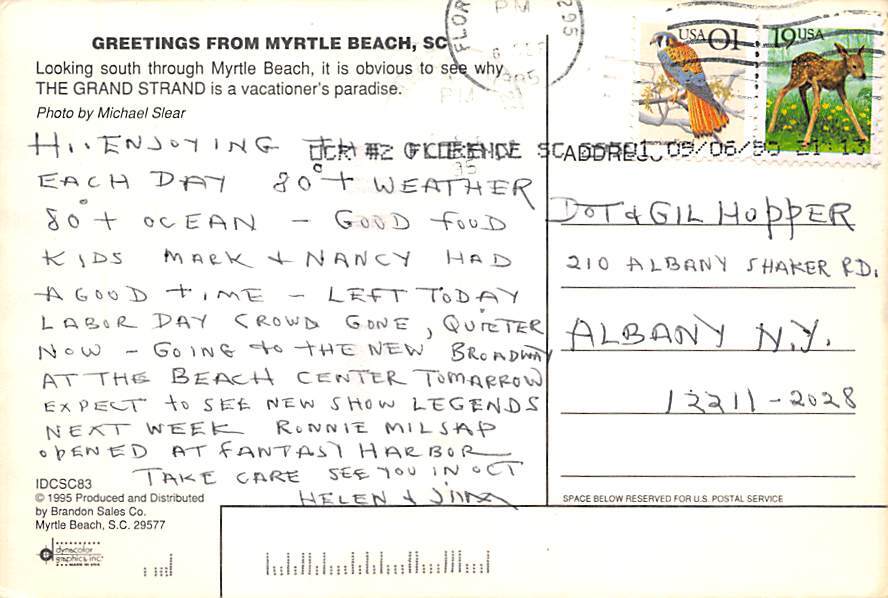 GREETINGS FROM MYRTLE BEACH, SC
Looking south through Myrtle Beach, it is obvious to see why
THE GRAND STRAND is a vacationer's paradise.
Photo by Michael Slear
HI.. ENJOYING
EACH DAY 80°+ WEATHER
80°+ OCEAN - GOOD FOOD
KIDS MARK + NANCY HAD
A GOOD TIME - LEFT TODAY
LABOR DAY CROWD GONE, QUIETER
NOW - GOING to THE NEW BROADWAY
AT THE BEACH CENTER TOMARROW
EXPECT to SEE NEW SHOW LEGENDS
NEXT WEEK RONNIE MILSAP
OPENED AT FANTASY HARBOR
TAKE CARE SEE YOU IN OCT
HELEN + JIM
IDCSC83
© 1995 Produced and Distributed
by Brandon Sales Co.
Myrtle Beach, S.C. 29577
dynacolor
graphics inc.
MADE IN USA
FLOR PM 295
6 1995
USA 01
19 USA
SC 09/06/95 21:13
DOT & GIL HOPPER
210 ALBANY SHAKER RD.
ALBANY N.Y.
12211-2028
SPACE BELOW RESERVED FOR U.S. POSTAL SERVICE